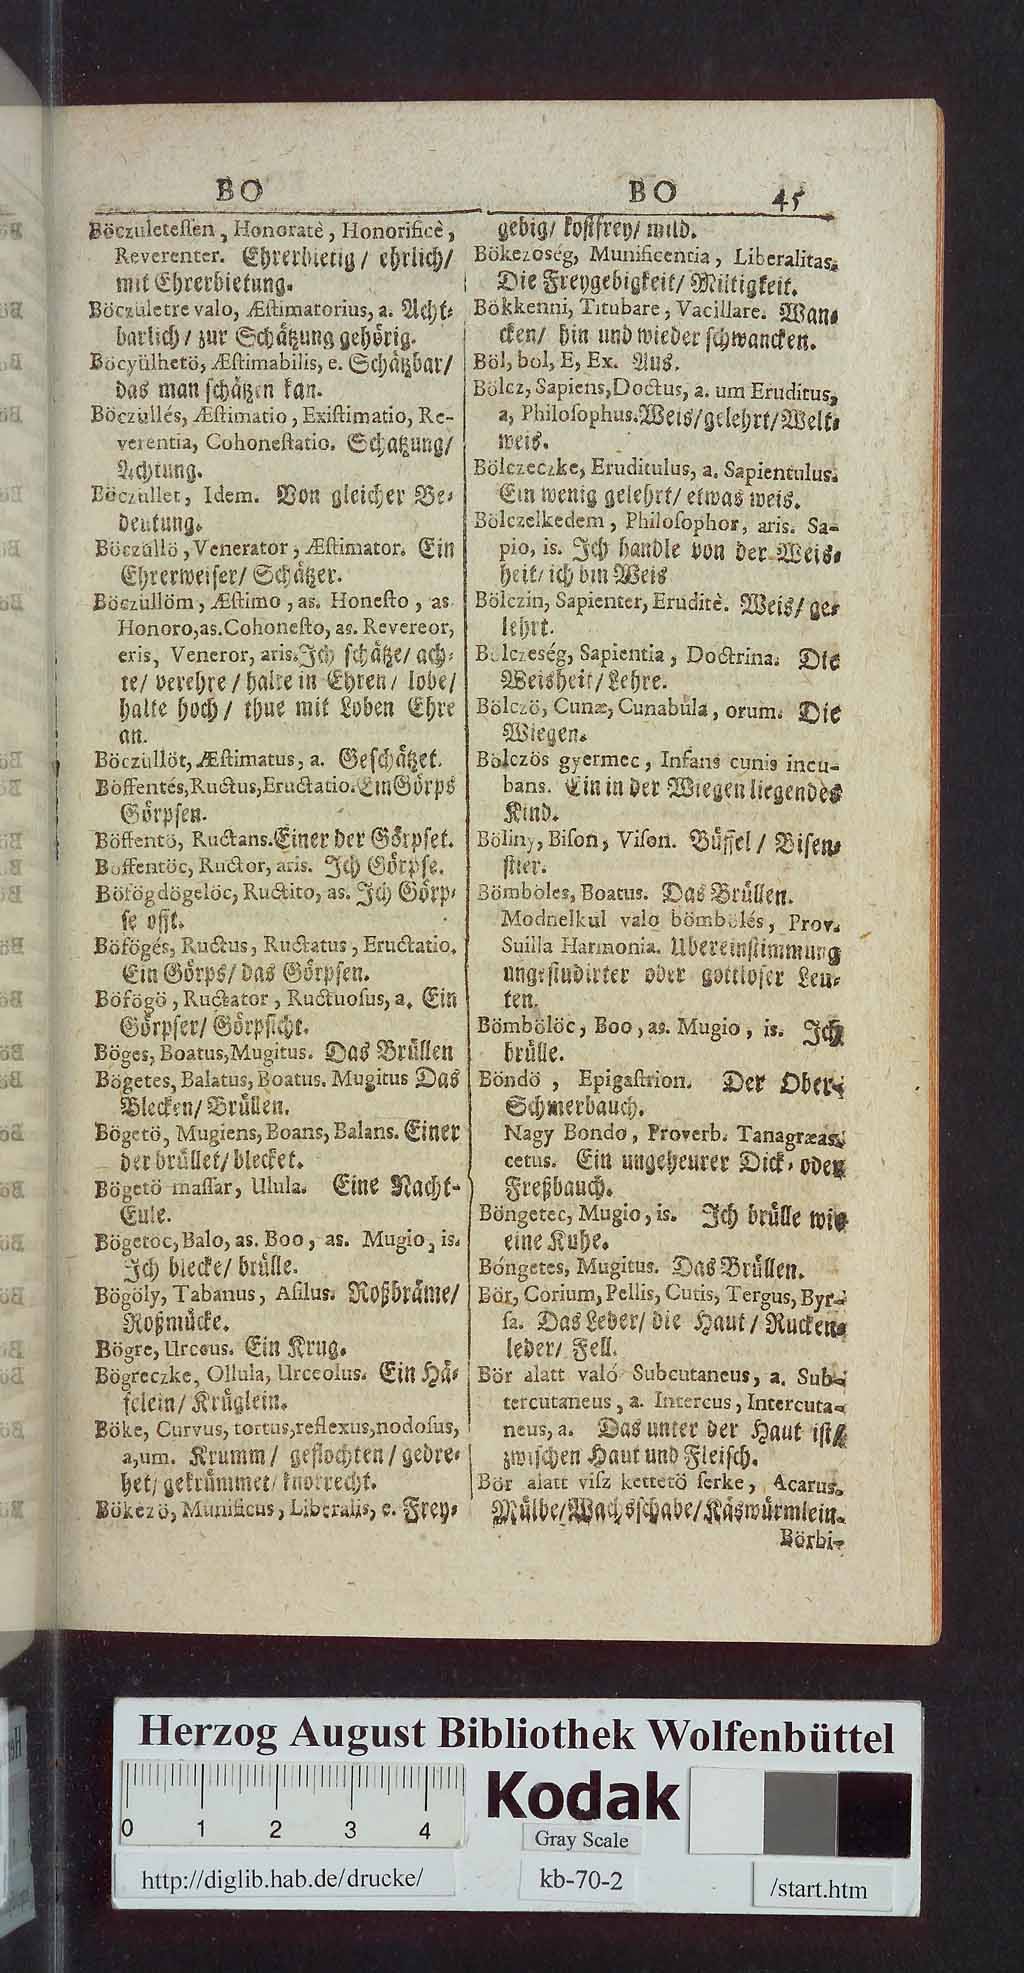 BO
Böczületeſſen, Honoratè, Honorificè,
Reverenter. Ehrerbietig/ ehrlich/
mit Ehrerbietung.
Böczületre valo, Æſtimatorius, a. Acht-
barlich/ zur Schätzung gehörig.
Böcyülhetö, Æſtimabilis, e. Schätzbar/
das man ſchätzen kan.
Böczüllés, Æſtimatio, Exiſtimatio, Re-
verentia, Cohoneſtatio. Schatzung/
Achtung.
Böczüllet, Idem. Von gleicher Be-
deutung.
Böczüllö, Venerator, Æſtimator. Ein
Ehrerweiſer/ Schätzer.
Böczüllöm, Æſtimo, as. Honeſto, as
Honoro, as. Cohoneſto, as. Revereor,
eris, Veneror, aris. Ich ſchätze/ ach-
te/ verehre/ halte in Ehren/ lobe/
halte hoch/ thue mit Loben Ehre
an.
Böczüllöt, Æſtimatus, a. Geſchätzet.
Böffentés, Ructus, Eructatio. Ein Görps
Görpſen.
Böffentö, Ructans. Einer der Görpſet.
Boffentöc, Ructor, aris. Ich Görpſe.
Böfögdögelöc, Ructito, as. Ich Görp-
ſe offt.
Böfögés, Ructus, Ructatus, Eructatio.
Ein Görps/ das Görpſen.
Böfögö, Ructator, Ructuoſus, a. Ein
Görpſer/ Görpſicht.
Böges, Boatus, Mugitus. Das Brüllen
Bögetes, Balatus, Boatus. Mugitus Das
Blecken/ Brüllen.
Bögetö, Mugiens, Boans, Balans. Einer
der brüllet/ blecket.
Bögetö maſſar, Ulula. Eine Nacht-
Eule.
Bögetoc, Balo, as. Boo, as. Mugio, is.
Ich blecke/ brülle.
Bögöly, Tabanus, Aſilus. Roßbräme/
Roßmücke.
Bögre, Urceus. Ein Krug.
Bögreczke, Ollula, Urceolus. Ein Hä-
felein/ Krüglein.
Böke, Curvus, tortus, reflexus, nodoſus,
a, um. Krumm/ geflochten/ gedre-
het/ gekrümmet/ knorrecht.
Bökezö, Munificus, Liberalis, e. Frey-
BO 45
gebig/ koſtfrey/ mild.
Bökezoség, Munificentia, Liberalitas.
Die Freygebigkeit/ Mütigkeit.
Bökkenni, Titubare, Vacillare. Wan-
cken/ hin und wieder ſchwancken.
Böl, bol, E, Ex. Aus.
Bölcz, Sapiens, Doctus, a. um Eruditus,
a, Philoſophus. Weis/ gelehrt/ Welt-
weis.
Bölczeczke, Eruditulus, a. Sapientulus.
Ein wenig gelehrt/ etwas weis.
Bölczelkedem, Philoſophor, aris. Sa-
pio, is. Ich handle von der Weis-
heit/ ich bin Weis
Bölczin, Sapienter, Eruditè. Weis/ ge-
lehrt.
Bolczeség, Sapientia, Doctrina. Die
Weisheit/ Lehre.
Bölczö, Cunæ, Cunabula, orum. Die
Wiegen.
Bölczös gyermec, Infans cunis incu-
bans. Ein in der Wiegen liegendes
Kind.
Böliny, Biſon, Viſon. Büffel/ Biſen-
ſtier.
Bömböles, Boatus. Das Brüllen.
Modnelkul valo bömbölés, Prov.
Suilla Harmonia. Ubereinſtimmung
ungeſtudirter oder gottloſer Leu-
ten.
Bömbölöc, Boo, as. Mugio, is. Ich
brülle.
Böndö, Epigaſtrion. Der Ober-
Schmerbauch.
Nagy Bondo, Proverb. Tanagræas.
cetus. Ein ungeheurer Dick- oder
Freßbauch.
Böngetec, Mugio, is. Ich brülle wie
eine Kuhe.
Bóngetes, Mugitus. Das Brüllen.
Bör, Corium, Pellis, Cutis, Tergus, Byr-
ſa. Das Leder/ die Haut/ Rucken-
leder/ Fell.
Bör alatt való Subcutaneus, a. Sub-
tercutaneus, a. Intercus, Intercuta-
neus, a. Das unter der Haut iſt/
zwiſchen Haut und Fleiſch.
Bör alatt viſz kettetö ſerke, Acarus.
Mülbe/ Wachsſchabe/ Käswürmlein.
Börbi-
Herzog August Bibliothek Wolfenbüttel
0 1 2 3 4
Kodak
Gray Scale
http://diglib.hab.de/drucke/
kb-70-2
/start.htm